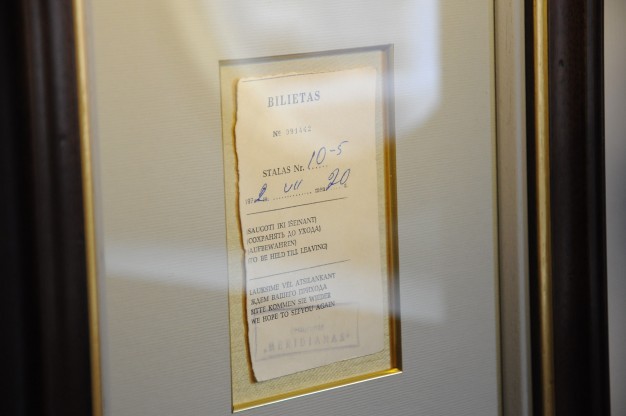 BILIETAS
№ 391462
STALAS Nr. 10-5
1982 m. VII mėn. 20
(SAUGOTI IKI IŠEINANT)
(СОХРАНЯТЬ ДО УХОДА)
(AUFBEWAHREN)
(TO BE HELD TILL LEAVING)
LAUKIAME VĖL ATSILANKANT
ЖДЕМ ВАШЕГО ПРИХОДА
BITTE KOMMEN SIE WIEDER
WE HOPE TO SEE YOU AGAIN